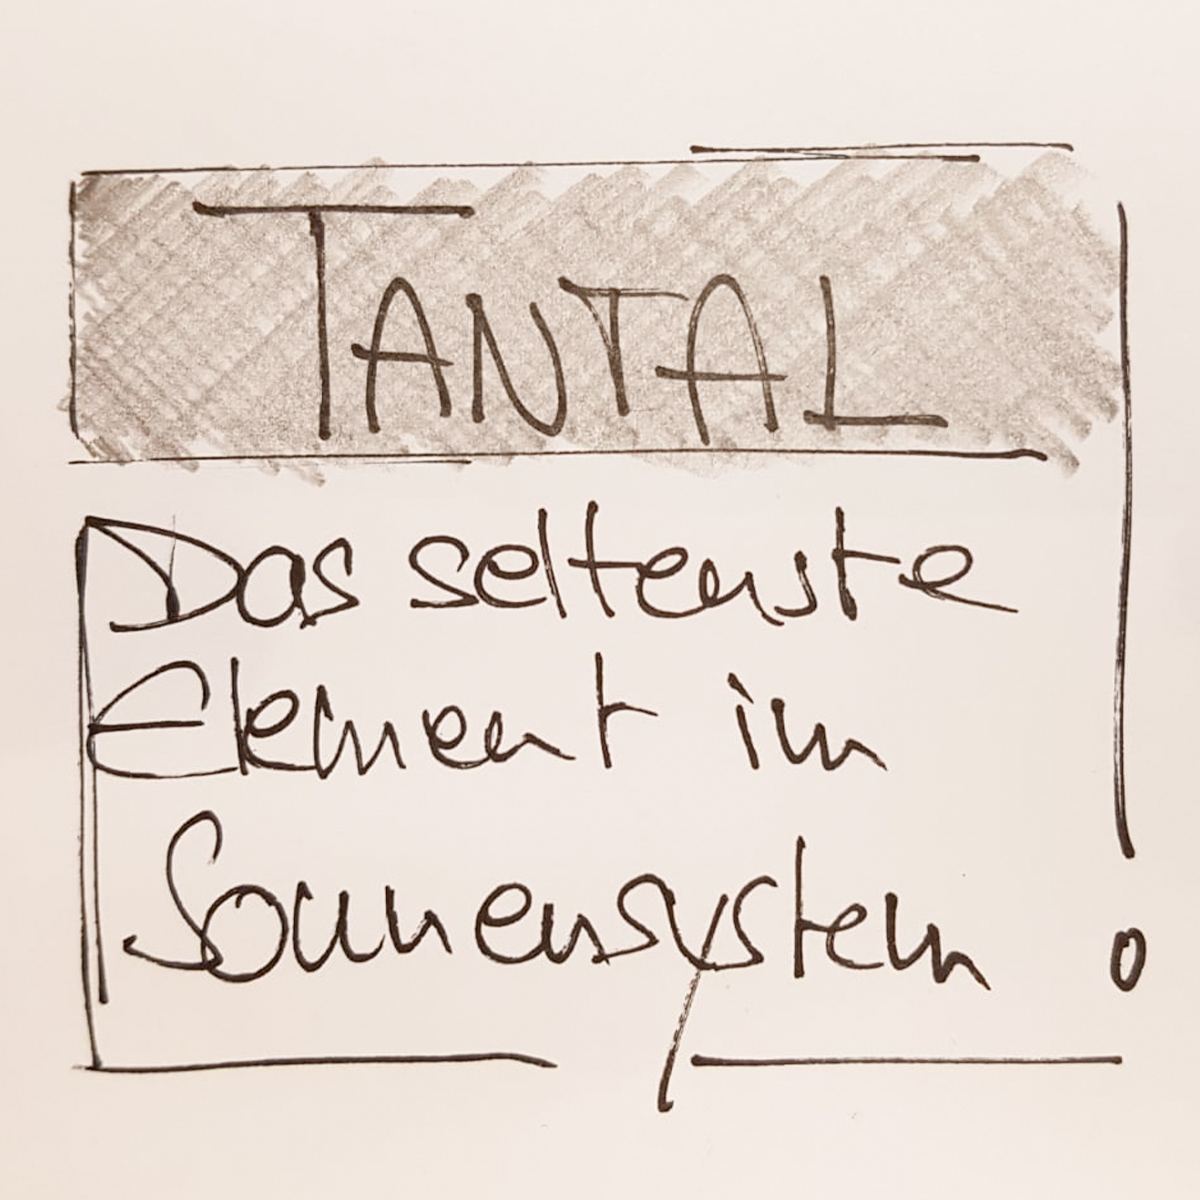 TANTAL
Das seltenste
Element im
Sonnensystem